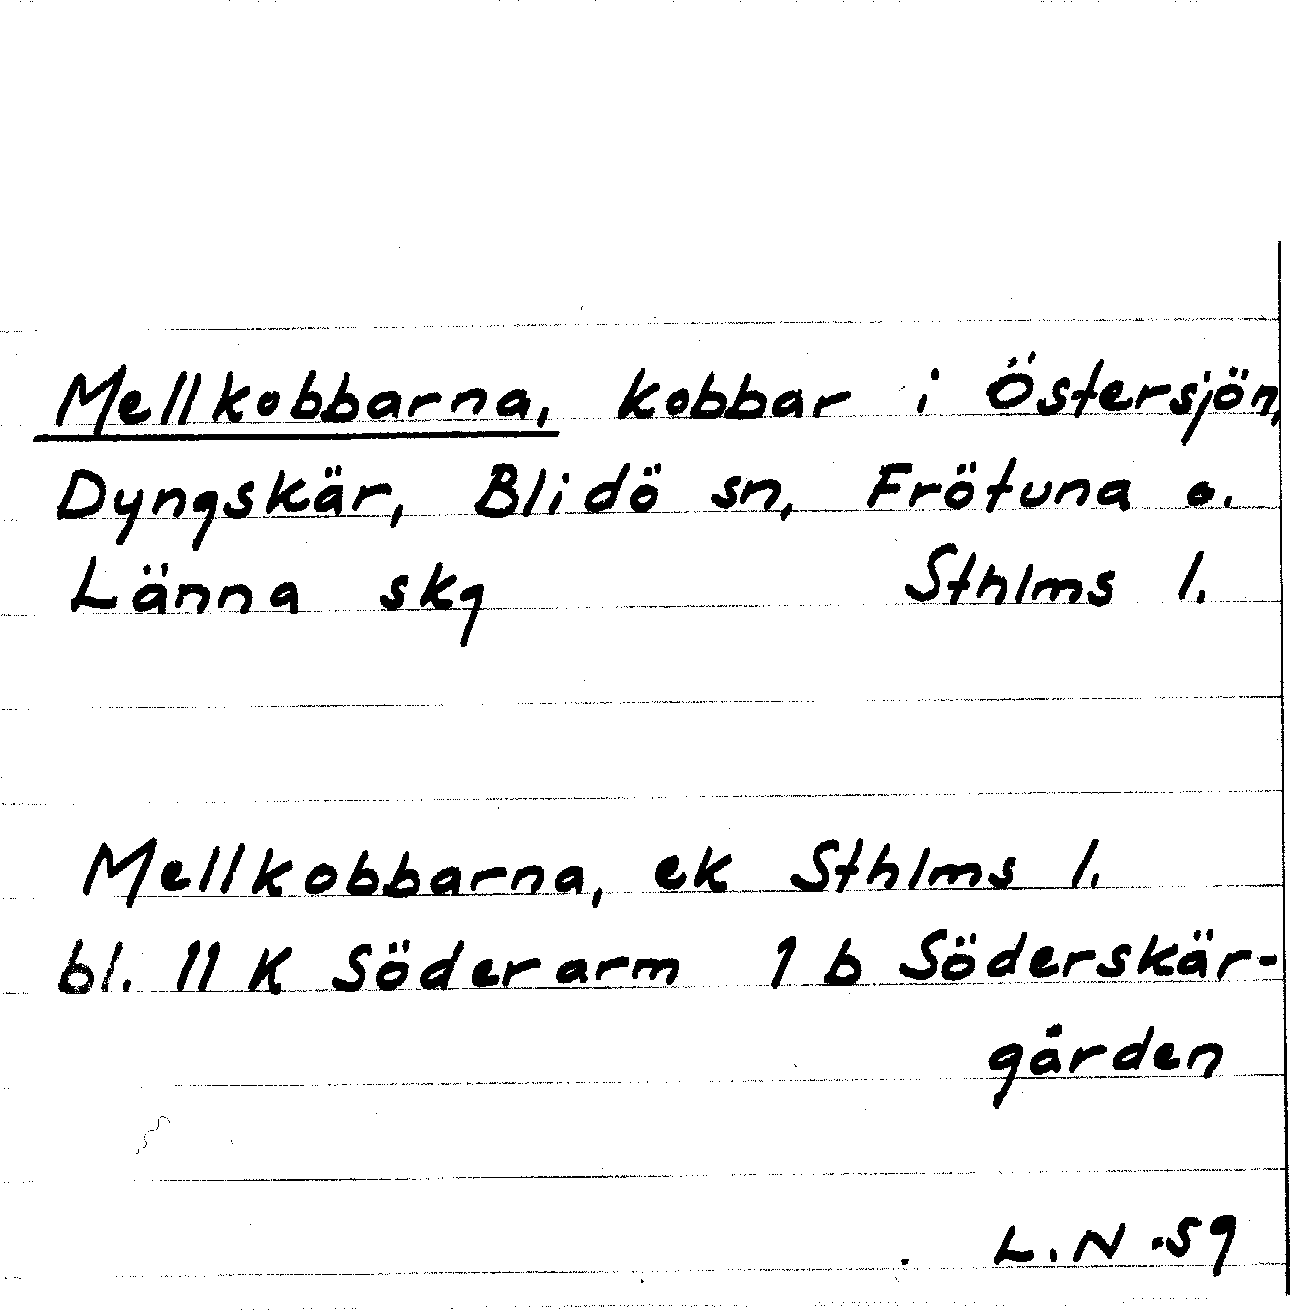 Mellkobbarna, kobbar i Östersjön,
Dyngskär, Blidö sn, Frötuna o.
Länna skg Sthlms l.
Mellkobbarna, ek Sthlms l.
bl. 11 K Söderarm 1 b Söderskär-
gården
L.N -59